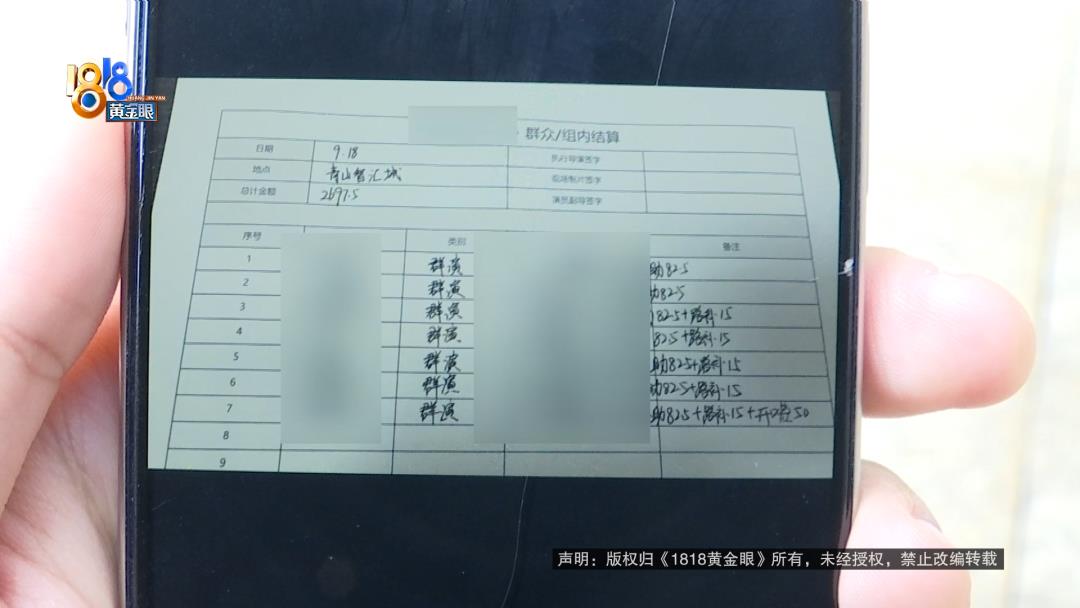 1818
HUANG JIN YAN
黄金眼
群众/组内结算
日期 9.18 执行导演签字
地点 青山智汇城 现场制片签字
总计金额 2697.5 演员副导签字
序号 类别 备注
1 群演 助82.5
2 群演 助82.5
3 群演 82.5+路补15
4 群演 82.5+路补15
5 群演 助82.5+路补15
6 群演 助82.5+路补15
7 群演 助82.5+路补15+开口腔50
8
9
声明：版权归《1818黄金眼》所有，未经授权，禁止改编转载